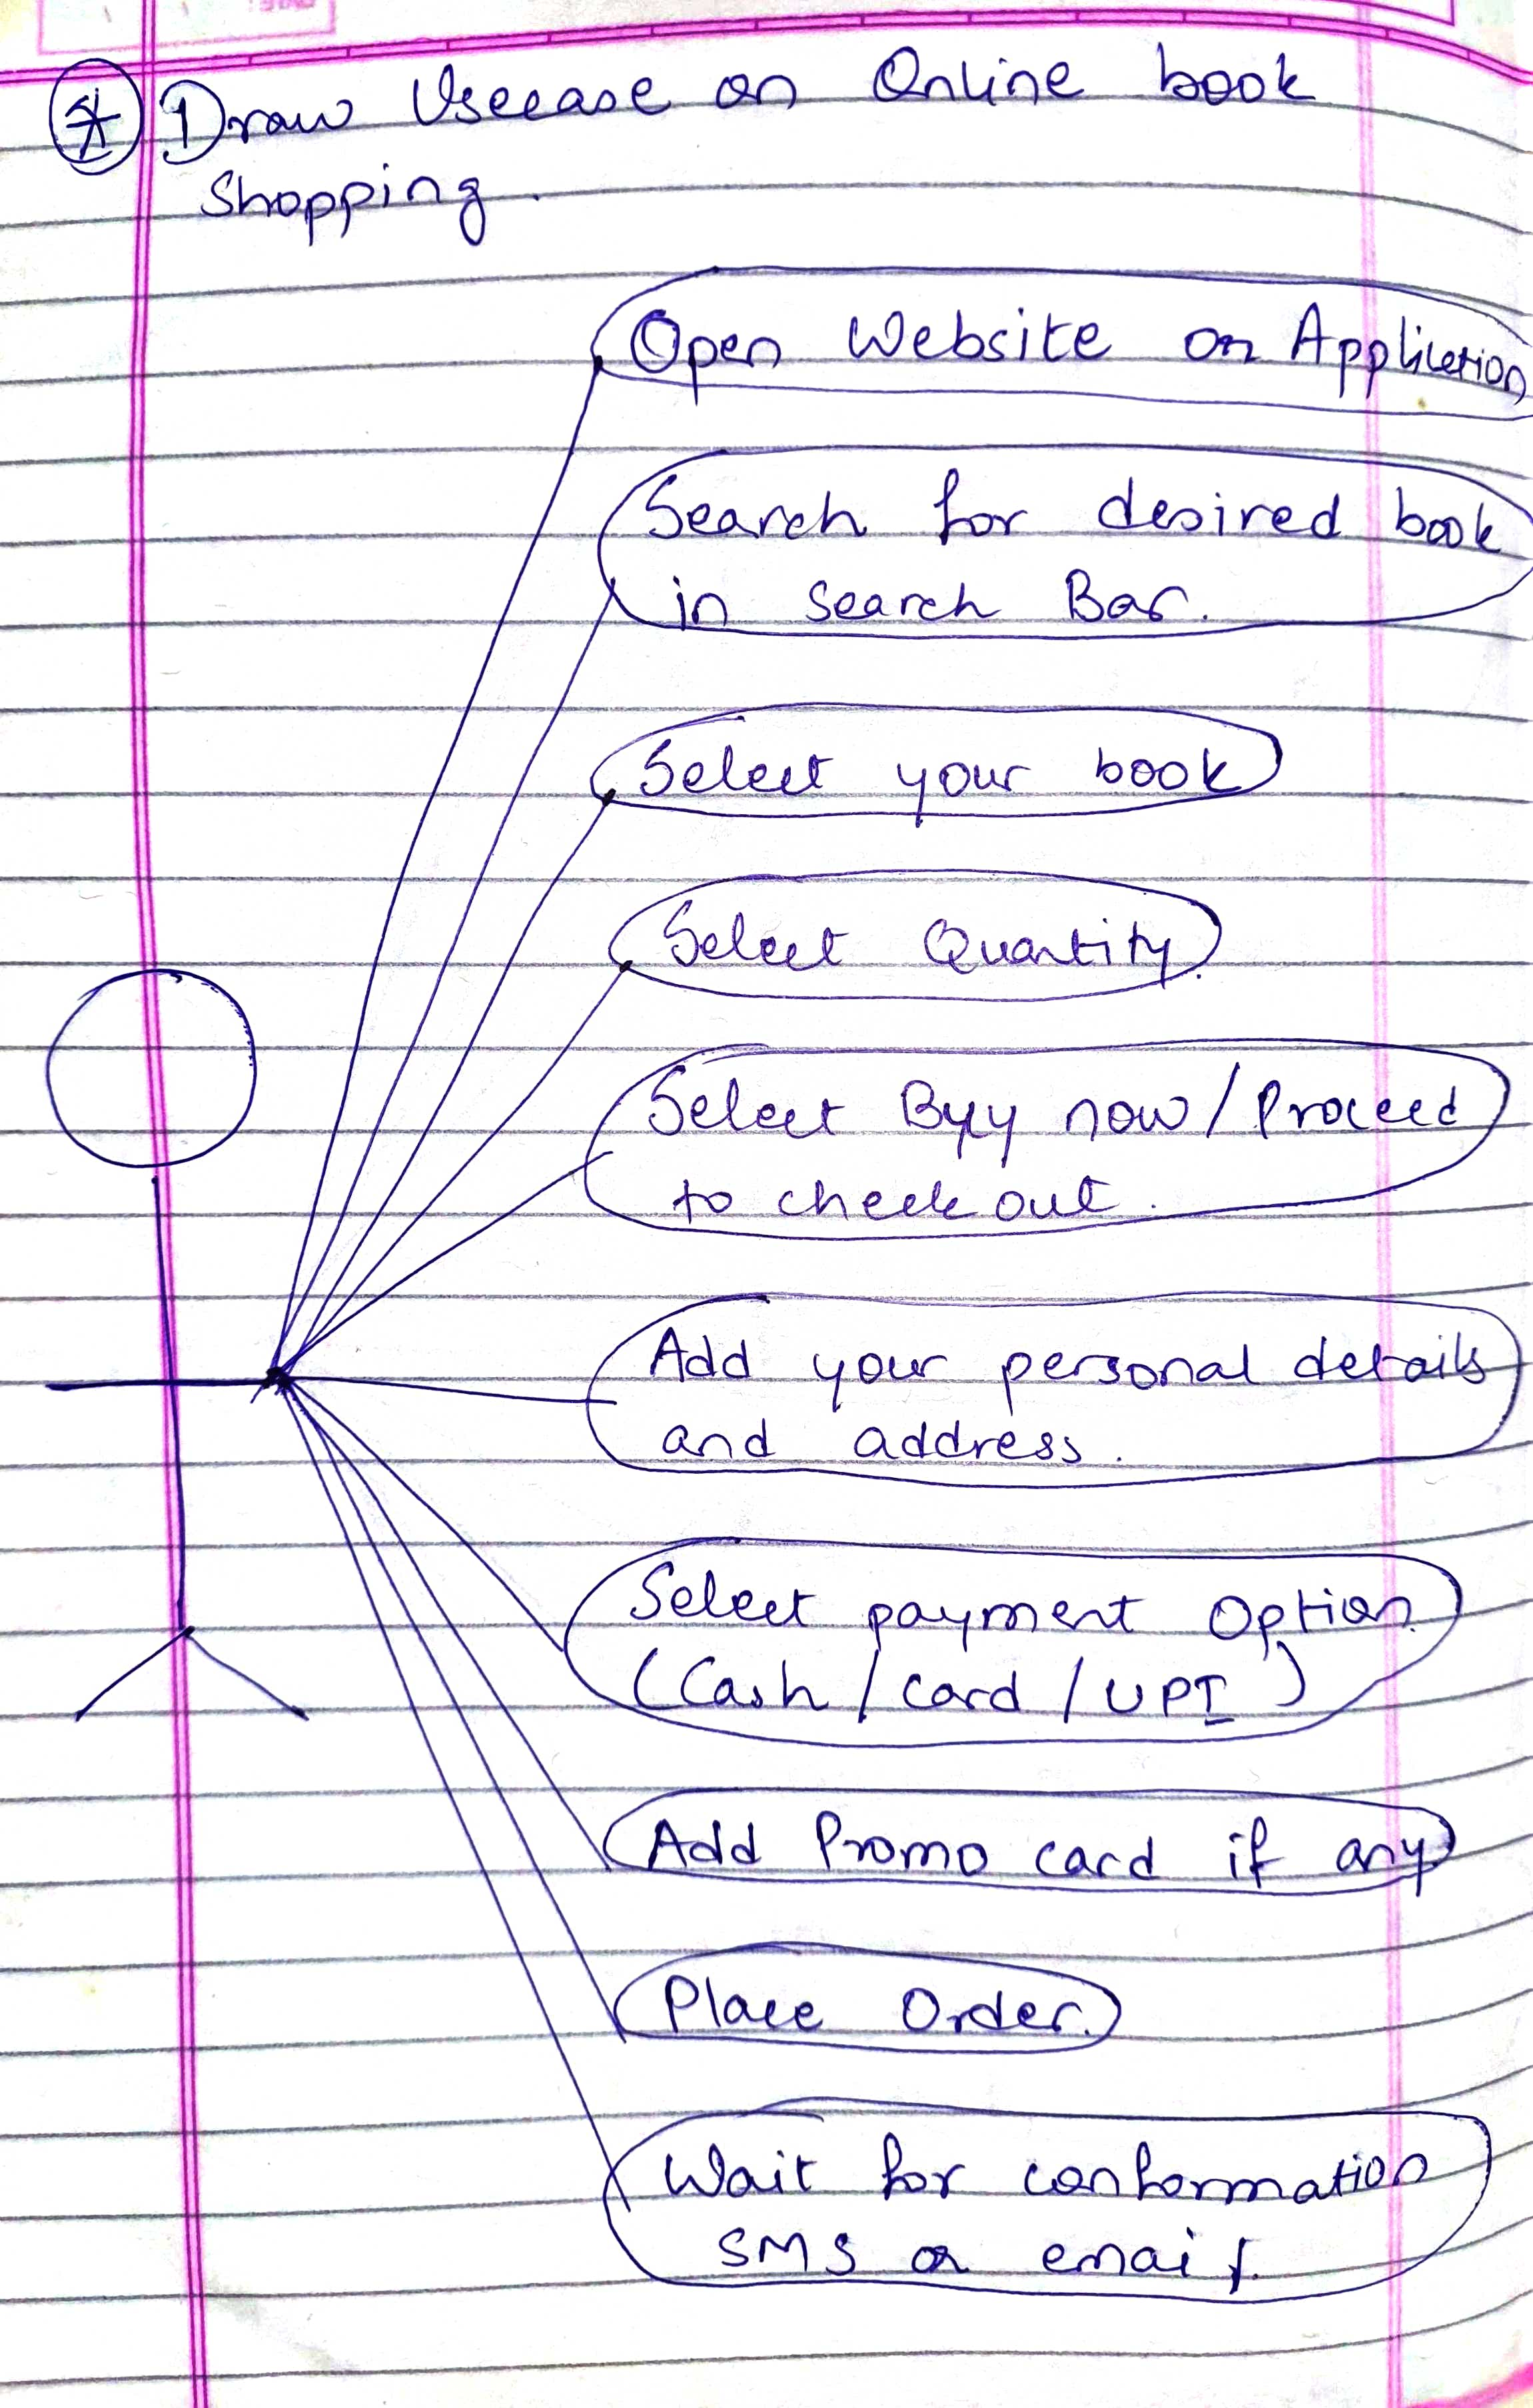 * 1) Draw Usecase on Online book
Shopping.
Open Website on Application
Search for desired book
in Search Bar.
Select your book
Select Quantity.
Select Byy now / Proceed
to check out.
Add your personal details
and address.
Select payment Option
(Cash / Card / UPI)
Add Promo card if any
Place Order.
Wait for conformation
SMS or email.